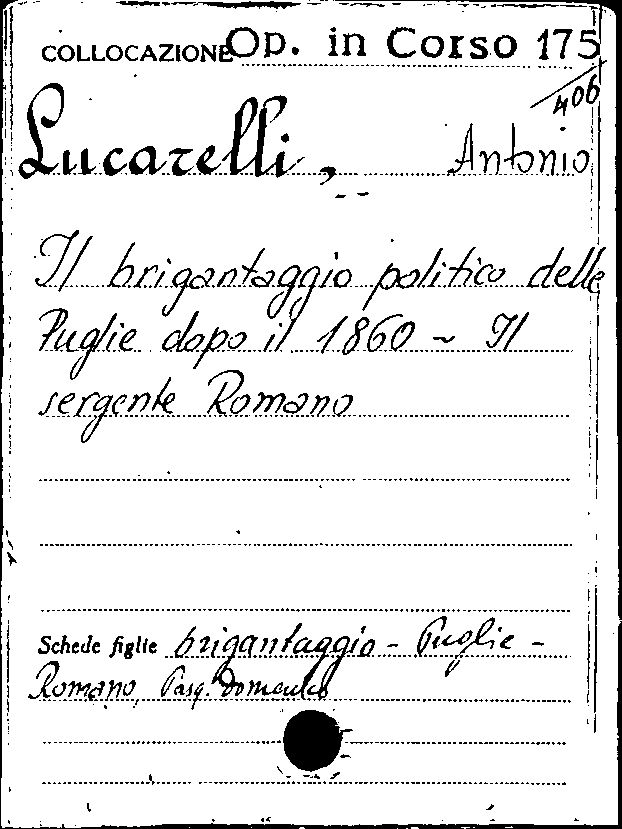 COLLOCAZIONE Op. in Corso 175
/406
Lucarelli, Antonio
Il brigantaggio politico delle
Puglie dopo il 1860 ~ Il
sergente Romano
Schede figlie brigantaggio - Puglie -
Romano, Pasq. Domenico